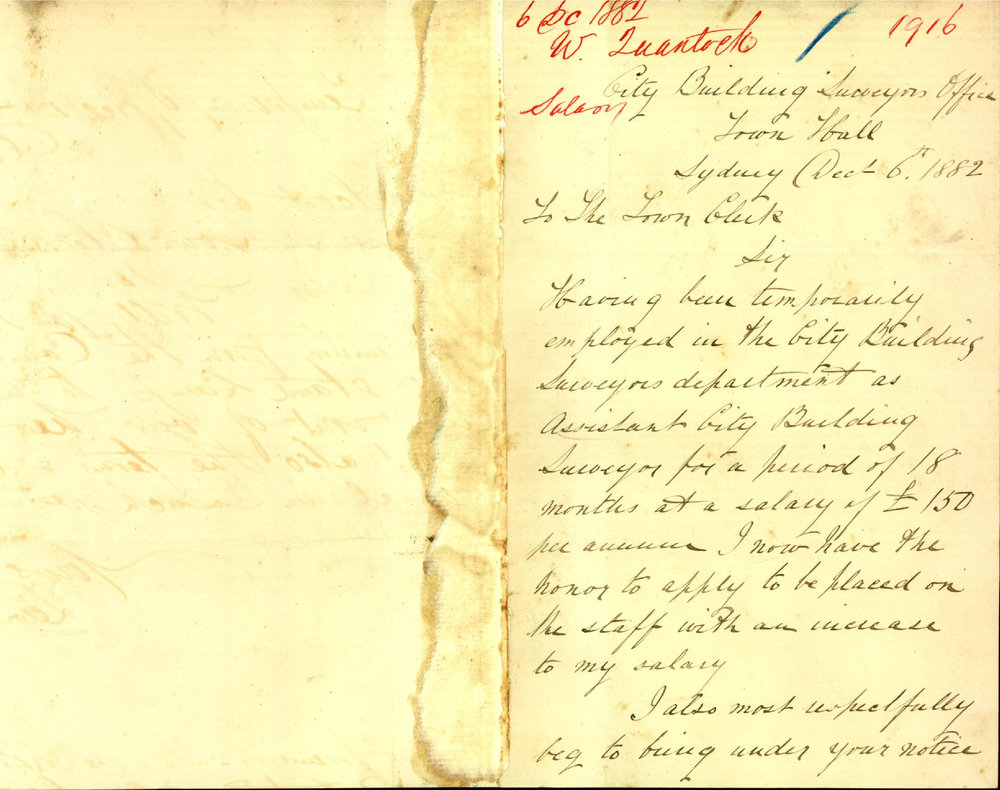 6 Dc 1882
W. Quantock
1916
Salary
City Building Surveyors Office
Town Hall
Sydney Dect 6th. 1882
To The Town Clerk
Sir
Having been temporarily
employed in the City Building
Surveyors department as
Assistant City Building
Surveyor for a period of 18
months at a salary of £ 150
per annum I now have the
honor to apply to be placed on
the staff with an increase
to my salary
I also most respectfully
beg to bring under your notice